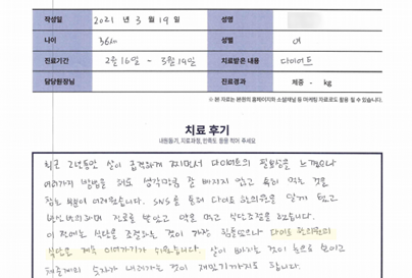 작성일 2021 년 3 월 19 일 성명
나이 36세 성별 여
진료기간 2월 16일 ~ 3월 19일 치료받은 내용 다이어트
담당원장님 진료결과 체중 - kg
※ 본 자료는 본원의 홈페이지와 소셜채널 등 마케팅 자료로도 활용 될 수 있습니다.
치료 후기
내원동기, 치료과정, 만족도 등을 적어 주세요
최근 2년동안 살이 급격하게 찌면서 다이어트의 필요성을 느꼈으나
여러가지 방법을 써도 생각만큼 잘 빠지지 않고 특히 먹는 것을
참는 부분이 어려웠습니다. SNS를 통해 다이트 한의원을 알게 됐고
진료를 받았고 약을 먹고 식단조절을 했습니다.
이 전에는 식단을 조절하는 것이 가장 힘들었으나 다이트 한의원의
식단을 계속 이어가기가 쉬웠습니다. 살이 빠지는 것이 눈으로 보이고
체중계의 숫자가 내려가는 것이 재밌기까지도 합니다.